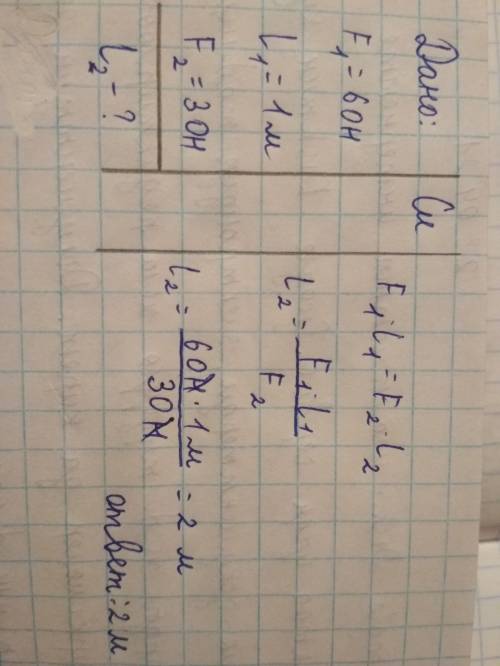 Дано:
F₁ = 60Н
L₁ = 1м
F₂ = 30Н
L₂ - ?
Си
F₁·L₁ = F₂·L₂
L₂ = F₁·L₁ / F₂
L₂ = 60Н · 1м / 30Н = 2 м
ответ: 2м